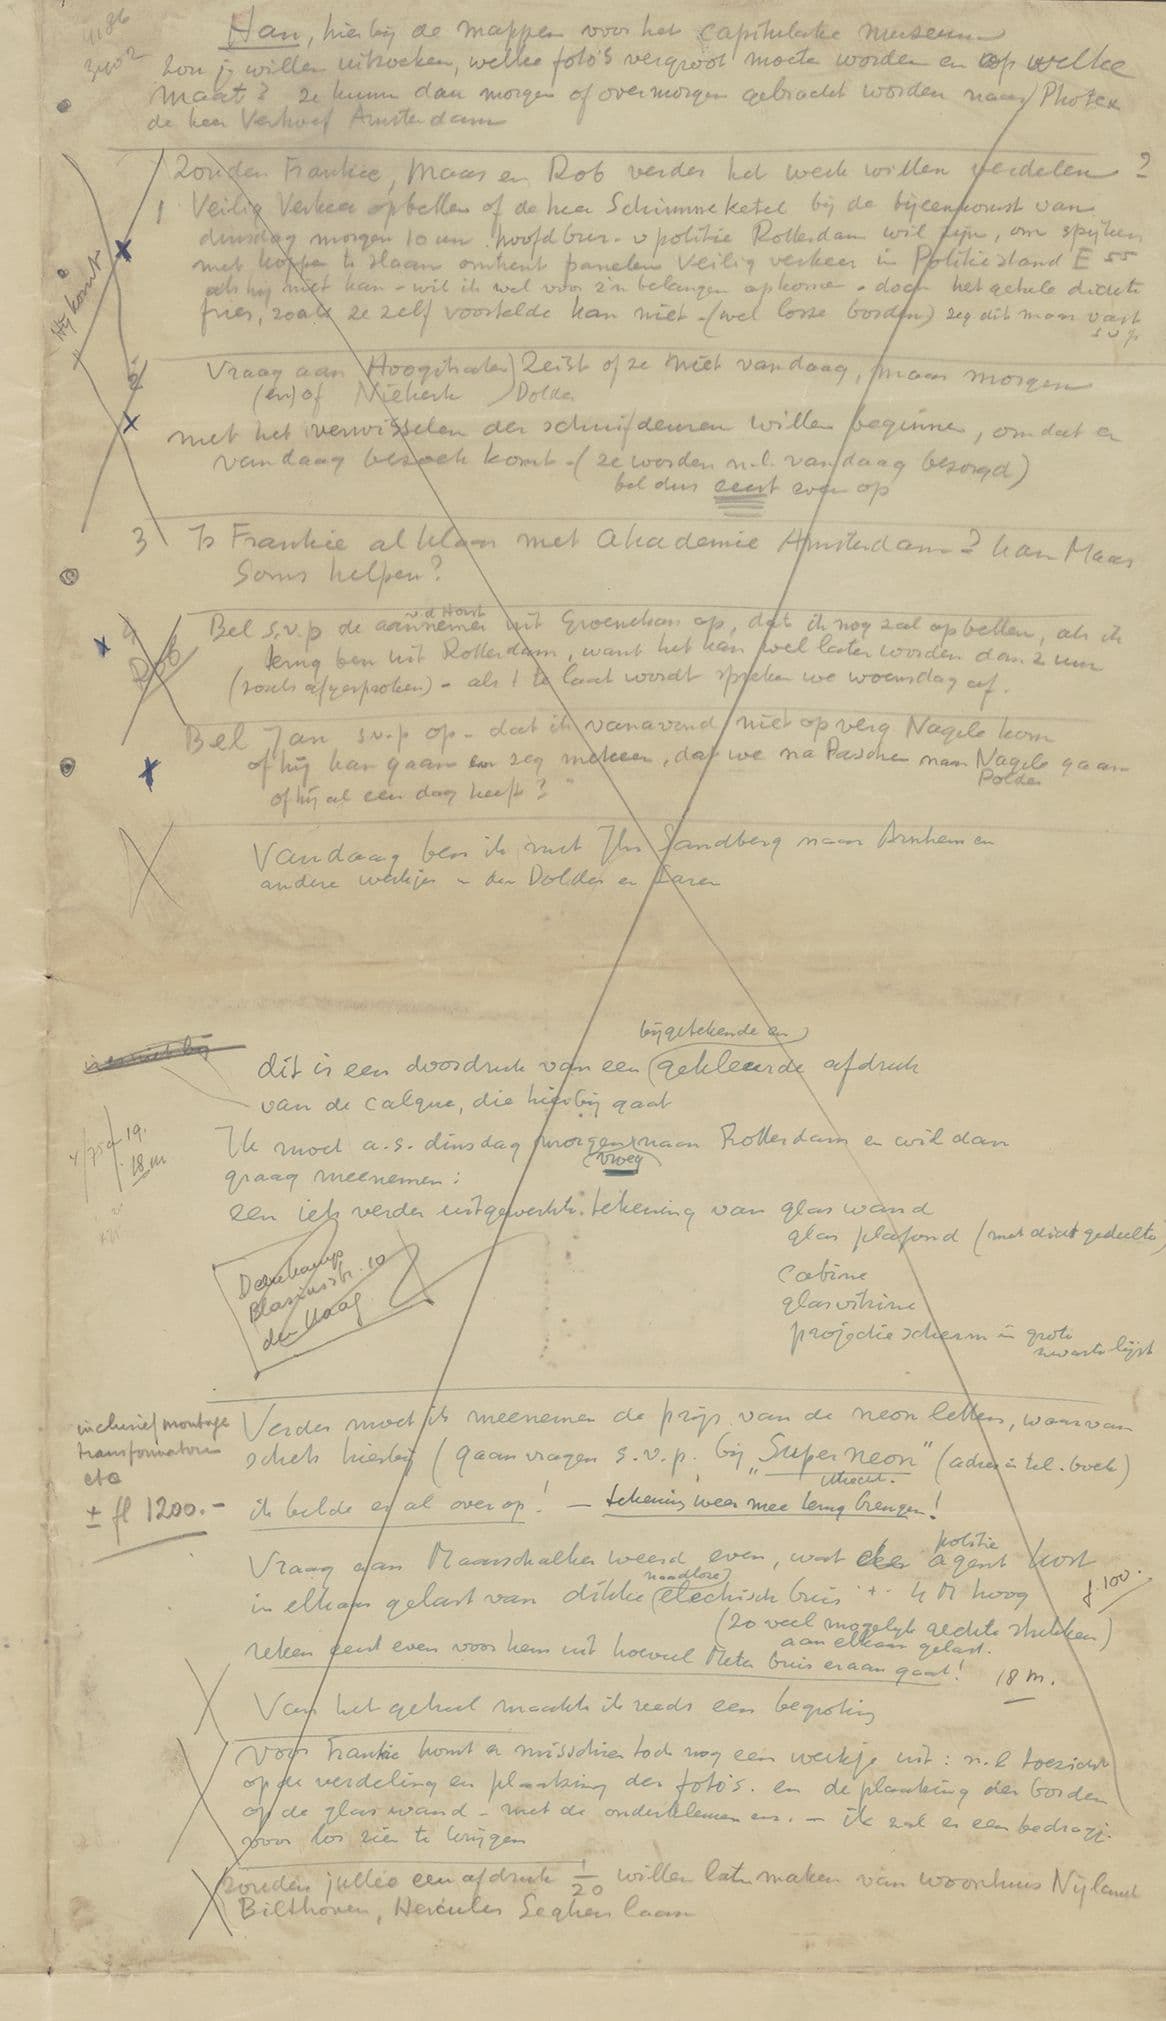 Han, hierbij de mappen voor het Capitulatie museum
Zou je willen uitzoeken, welke foto's vergroot moeten worden en op welke
maat? Ze kunnen dan morgen of overmorgen gebracht worden naar Photex
de heer Verhoef Amsterdam
Zouden Frankie, Maas en Rob verder het werk willen verdelen?
1 Veilig Verkeer opbellen of de heer Schimmeketel bij de bijeenkomst van
dinsdag morgen 10 uur hoofdbur. v politie Rotterdam wil zijn, om spijkers
met koppen te slaan omtrent panelen Veilig verkeer in Politiestand E 55
als hij niet kan - wil ik wel voor z'n belangen opkomen - doch het gehele dichte
fries, zoals ze zelf voorstelde kan niet - (wel losse borden) zeg dit maar vast
s v p
Hij komt
2 Vraag aan Zeist of ze niet vandaag, maar morgen
(en) of Niekerk Dolder
met het verwisselen der schuifdeuren willen beginnen, omdat er
vandaag bezoek komt - (ze worden n.l. vandaag bezorgd)
bel dus eerst even op
3 Is Frankie al klaar met Akademie Amsterdam? kan Maas
soms helpen?
4 Bel s.v.p de aannemer v.d Horst uit Groenekan op, dat ik nog zal opbellen, als ik
terug ben uit Rotterdam, want het kan wel later worden dan 2 uur
(zoals afgesproken) - als 't te laat wordt spreken we woensdag af.
Rob
Bel Jan s.v.p op - dat ik vanavond niet op verg Nagele kom
of hij kan gaan en zeg meteen, dat we na Paschen naar Nagele gaan
Polder
of hij al een dag heeft?
Vandaag ben ik met Jhr Sandberg naar Arnhem en
andere werkjes in den Dolder en Laren
bijgetekende en
dit is een doordruk van een (gekleurde afdruk
van de calque, die hierbij gaat
Ik moet a.s. dinsdag morgen naar Rotterdam en wil dan
(vroeg)
graag meenemen:
een iets verder uitgewerkte tekening van glas wand
glas plafond (met dicht gedeelte)
cabine
glasvitrine
projectiescherm in grote
zwarte lijst
Blasiusstr. 10
den Haag
18 m
inclusief montage
transformatoren
etc
± fl 1200.-
Verder moet ik meenemen de prijs van de neon letters, waarvan
schets hierbij (gaan vragen s.v.p. bij „Superneon" (adres in tel. boek)
Utrecht.
ik belde er al over op! - tekening weer mee terug brengen!
Vraag aan Maarschalkerweerd even, wat politie agent kost
in elkaar gelast van dikke (naadloze) electrisch buis + 4 M hoog
f. 100.-
(zo veel mogelijk rechte stukken)
aan elkaar gelast.
reken eerst even voor hem uit hoeveel Meter buis eraan gaat! 18 m.
Van het geheel maakte ik reeds een begroting
Voor Frankie komt er misschien toch nog een werkje uit: n.l toezicht
op de verdeling en plaatsing der foto's. en de plaatsing der borden
op de glas wand - met de onderdelen enz. - ik zal er een bedragje
voor los zien te krijgen
Zouden jullie een afdruk 1/20 willen laten maken van woonhuis Nijland
Bilthoven, Hercules Seghers laan